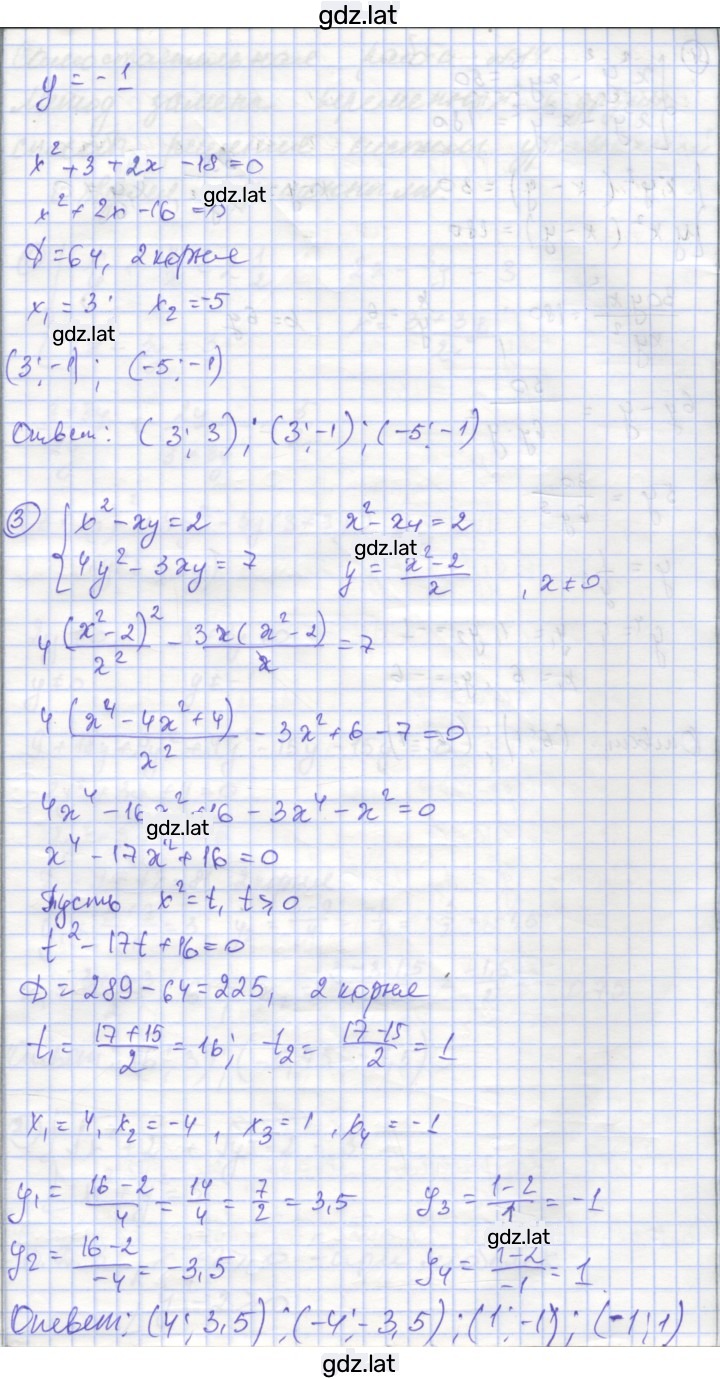 gdz.lat
y = -1
x² + 3 + 2x - 18 = 0
gdz.lat
x² + 2x - 16 = 0
D = 64, 2 корня
x₁ = 3; x₂ = -5
gdz.lat
(3; -1); (-5; -1)
Ответ: (3; 3); (3; -1); (-5; -1)
③ { x² - xy = 2    x² - xy = 2
gdz.lat
4y² - 3xy = 7    y = (x² - 2)/x, x ≠ 0
4 (x² - 2)²/x² - 3x(x² - 2)/x = 7
4·(x⁴ - 4x² + 4)/x² - 3x² + 6 - 7 = 0
4x⁴ - 16x² + 16 - 3x⁴ - x² = 0
gdz.lat
x⁴ - 17x² + 16 = 0
Пусть x² = t, t ≥ 0
t² - 17t + 16 = 0
D = 289 - 64 = 225, 2 корня
t₁ = (17 + 15)/2 = 16; t₂ = (17 - 15)/2 = 1
x₁ = 4, x₂ = -4, x₃ = 1, x₄ = -1
y₁ = (16 - 2)/4 = 14/4 = 7/2 = 3,5    y₃ = (1 - 2)/1 = -1
gdz.lat
y₂ = (16 - 2)/-4 = -3,5    y₄ = (1 - 2)/-1 = 1
Ответ: (4; 3,5); (-4; -3,5); (1; -1); (-1; 1)
gdz.lat